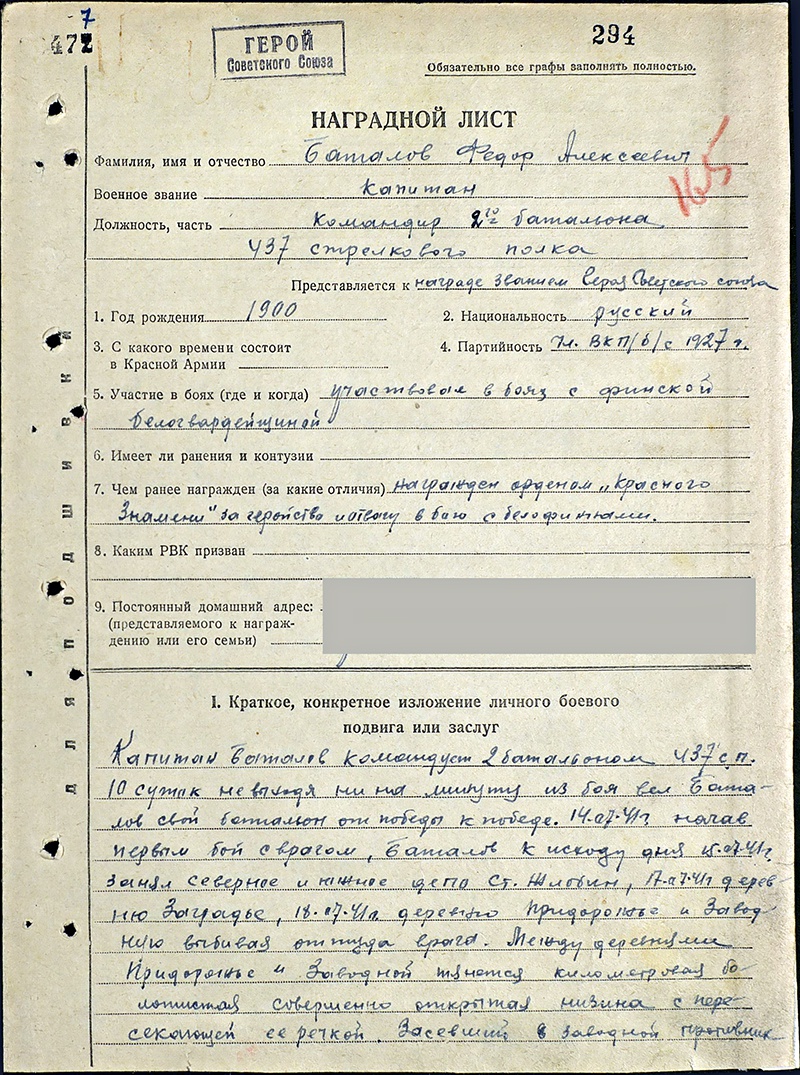 7
472
ГЕРОЙ
Советского Союза
294
Обязательно все графы заполнять полностью.
НАГРАДНОЙ ЛИСТ
165
Фамилия, имя и отчество Баталов Федор Алексеевич
Военное звание капитан
Должность, часть командир 2го батальона
437 стрелкового полка
Представляется к награде званием Героя Советского союза
1. Год рождения 1900
2. Национальность русский
3. С какого времени состоит
в Красной Армии
4. Партийность Чл. ВКП/б/ с 1927 г.
5. Участие в боях (где и когда) участвовал в боях с финской
белогвардейщиной
6. Имеет ли ранения и контузии
7. Чем ранее награжден (за какие отличия) награжден орденом „Красного
Знамени" за геройство и отвагу в бою с белофиннами.
8. Каким РВК призван
9. Постоянный домашний адрес:
(представляемого к награж-
дению или его семьи)
для подшивки
I. Краткое, конкретное изложение личного боевого
подвига или заслуг
Капитан Баталов командует 2 батальоном 437 с.п.
10 суток не выходя ни на минуту из боя вел Бата-
лов свой батальон от победы к победе. 14.07.41г. начав
первым бой с врагом, Баталов к исходу дня 15.07.41г.
занял северное и южное депо ст. Жлобин, 17.07.41г дерев-
ню Заградье, 18.07.41г. деревню Придорожье и Завод-
ную выбивая оттуда врага. Между деревнями
Придорожье и Заводной тянется километровая бо-
лотистая совершенно открытая низина с пере-
секающей ее речкой. Засевший в заводной противник